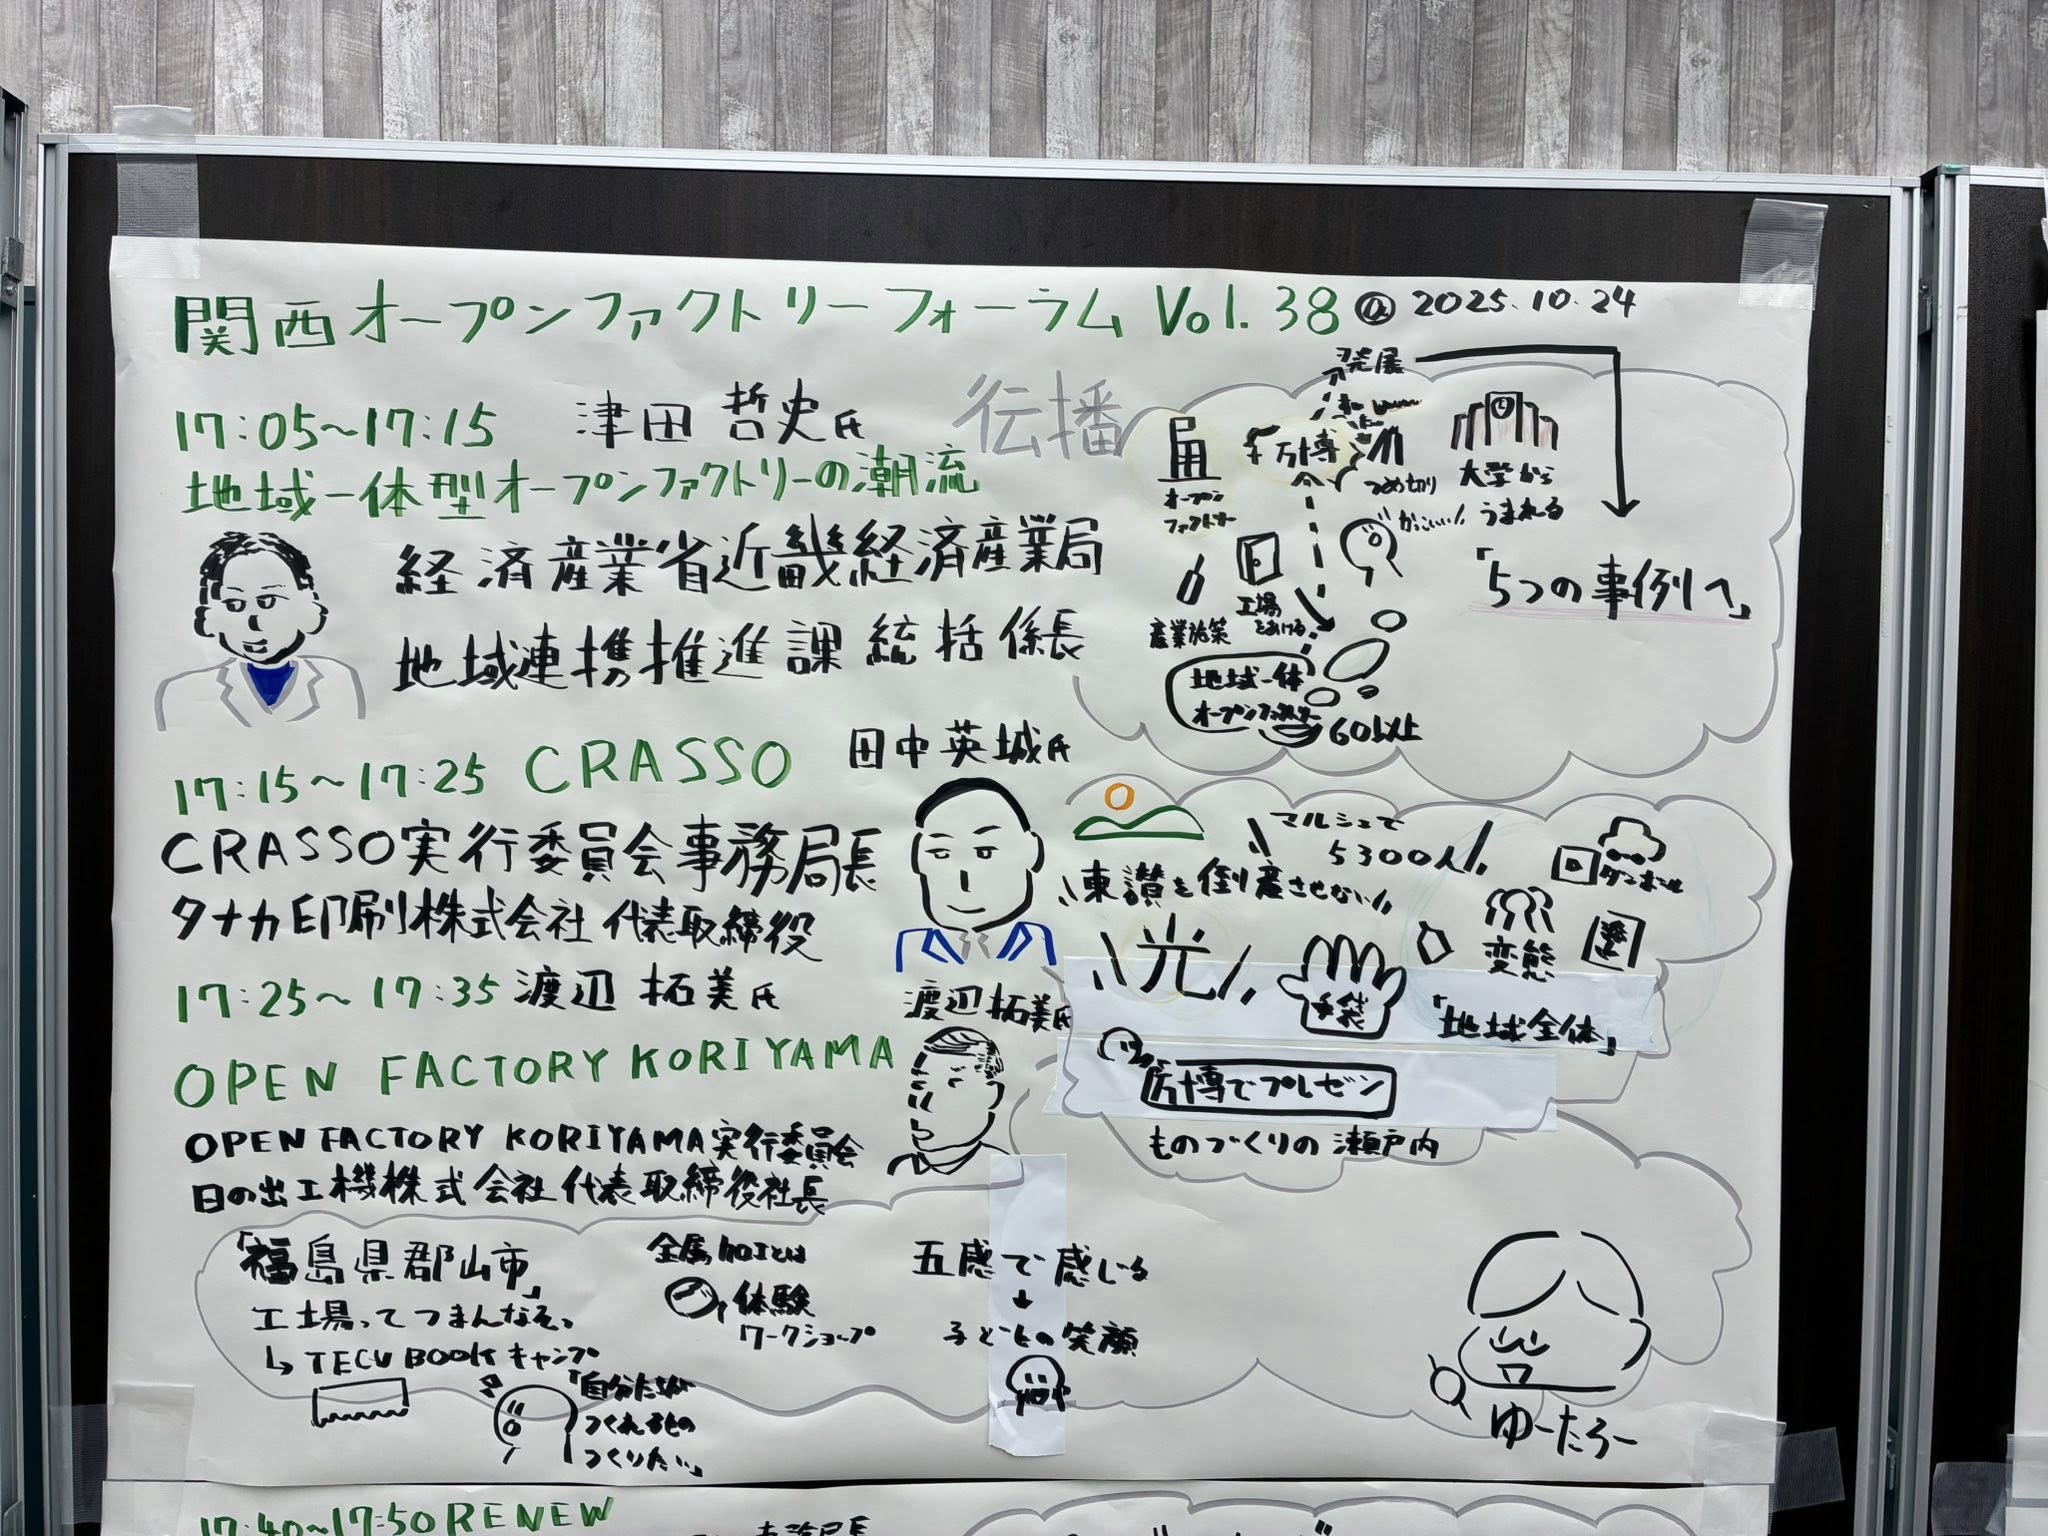 関西オープンファクトリーフォーラム Vol.38 @ 2025.10.24
17:05~17:15 津田 哲史氏
地域一体型オープンファクトリーの潮流
経済産業省近畿経済産業局
地域連携推進課 統括係長
伝播
発展
オープン
ファクトリー
「万博」
つめ切り
大学から
うまれる
かっこいい!
「5つの事例へ」
産業施策
工場
をあける
地域一体
オープンファクトリー
60以上
17:15~17:25 CRASSO 田中英城氏
CRASSO実行委員会事務局長
タナカ印刷株式会社 代表取締役
マルシェで
5300人
東讃を倒産させない
ダンボール
光
手袋
変態
「地域全体」
万博でプレゼン
ものづくりの瀬戸内
17:25~17:35 渡辺 拓美氏
渡辺拓美氏
OPEN FACTORY KORIYAMA
OPEN FACTORY KORIYAMA実行委員会
日の出工機株式会社 代表取締役社長
「福島県郡山市」
工場ってつまんなそっ
↳ TECU BOOK キャンプ
「自分たちが
つくれるもの
つくりたい」
金属加工とは
体験
ワークショップ
五感で感じる
↓
子どもの笑顔
ゆーたろー
17:40~17:50 RENEW